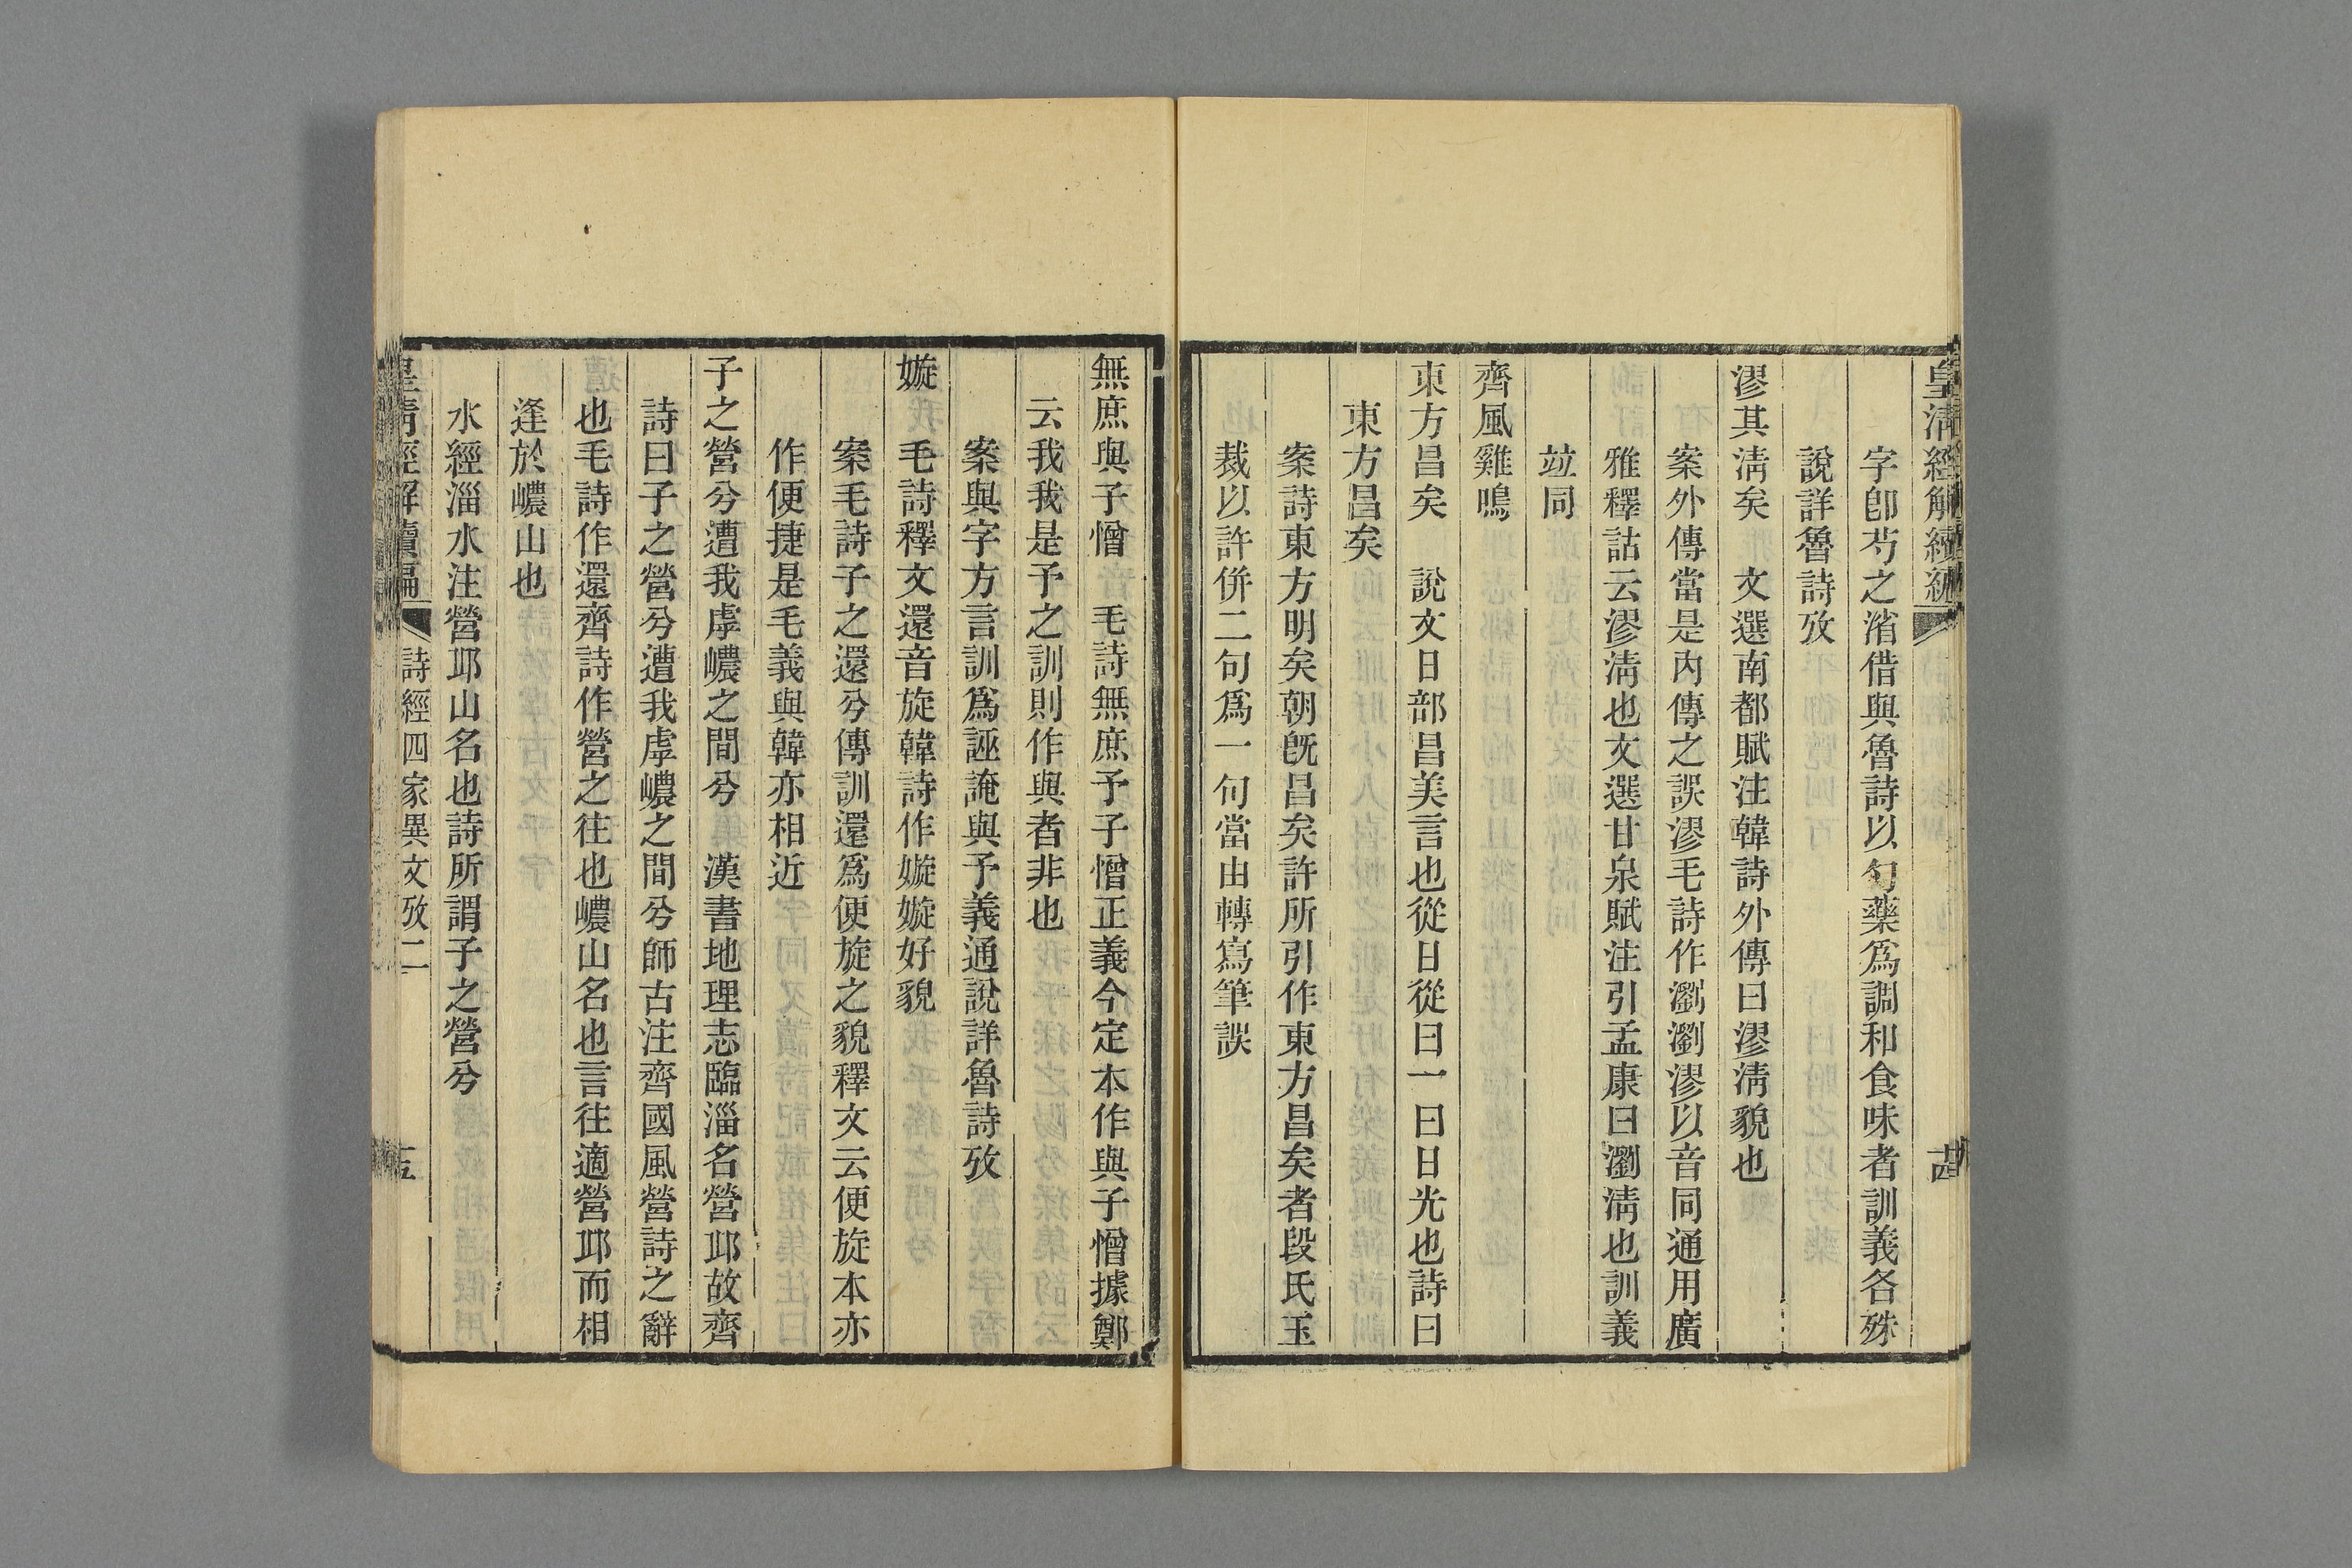 皇淸經解續編
十四
字卽芍之渻借與魯詩以勺藥爲調和食味者訓義各殊
說詳魯詩攷
漻其淸矣　文選南都賦注韓詩外傳曰漻淸貌也
案外傳當是內傳之誤漻毛詩作瀏瀏漻以音同通用廣
雅釋詁云漻淸也文選甘泉賦注引孟康曰瀏淸也訓義
竝同
齊風雞鳴
東方昌矣　說文日部昌美言也從日從曰一曰日光也詩曰
東方昌矣
案詩東方明矣朝旣昌矣許所引作東方昌矣者段氏玉
裁以許併二句爲一句當由轉寫筆誤
無庶與子憎　毛詩無庶予子憎正義今定本作與子憎據鄭
云我我是予之訓則作與者非也
案與字方言訓爲誣詭與予義通說詳魯詩攷
嫙　毛詩釋文還音旋韓詩作嫙嫙好貌
案毛詩子之還兮傳訓還爲便旋之貌釋文云便旋本亦
作便捷是毛義與韓亦相近
子之營兮遭我虖巙之間兮　漢書地理志臨淄名營邱故齊
詩曰子之營兮遭我虖巙之間兮師古注齊國風營詩之辭
也毛詩作還齊詩作營之往也巙山名也言往適營邱而相
逢於巙山也
水經淄水注營邱山名也詩所謂子之營兮
皇淸經解續編
詩經四家異文攷二
十五